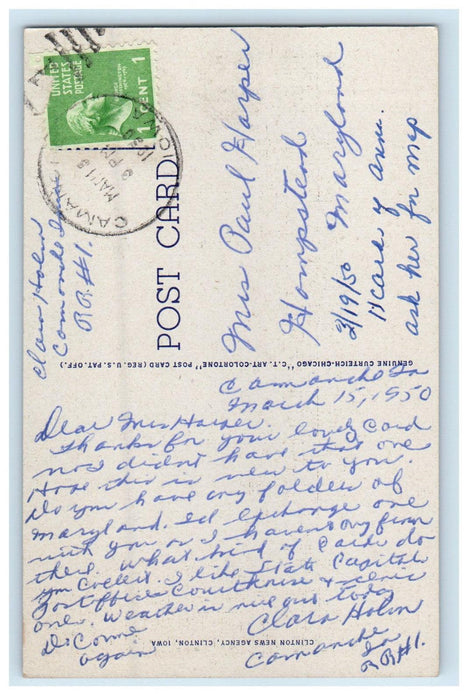 UNITED
STATES
POSTAGE
1 CENT 1
CAMANCHE
MAR 18
3 PM
1950
IOWA
Clara Holm
Camanche Iowa
R R #1.
POST CARD
Mrs Paul Harper
Hampstead
Maryland
3/19/50
ask her for map
GENUINE CURTEICH-CHICAGO "C.T. ART-COLORTONE" POST CARD (REG. U.S. PAT. OFF.)
Camanche Ia
March 15, 1950
Dear Mrs Harper.
Thanks for your lovely card
no I didn't have that one
Hope this is new to you.
Do you have any folders of
Maryland. I'd exchange one
with you as I haven't any from
there. What kind of cards do
you collect. I like State Capitals
Post offices Courthouse & scenic
one. Weather is nice out today
Clara Holm
Do Come
again
Camanche
Ia
R R #1.
CLINTON NEWS AGENCY, CLINTON, IOWA